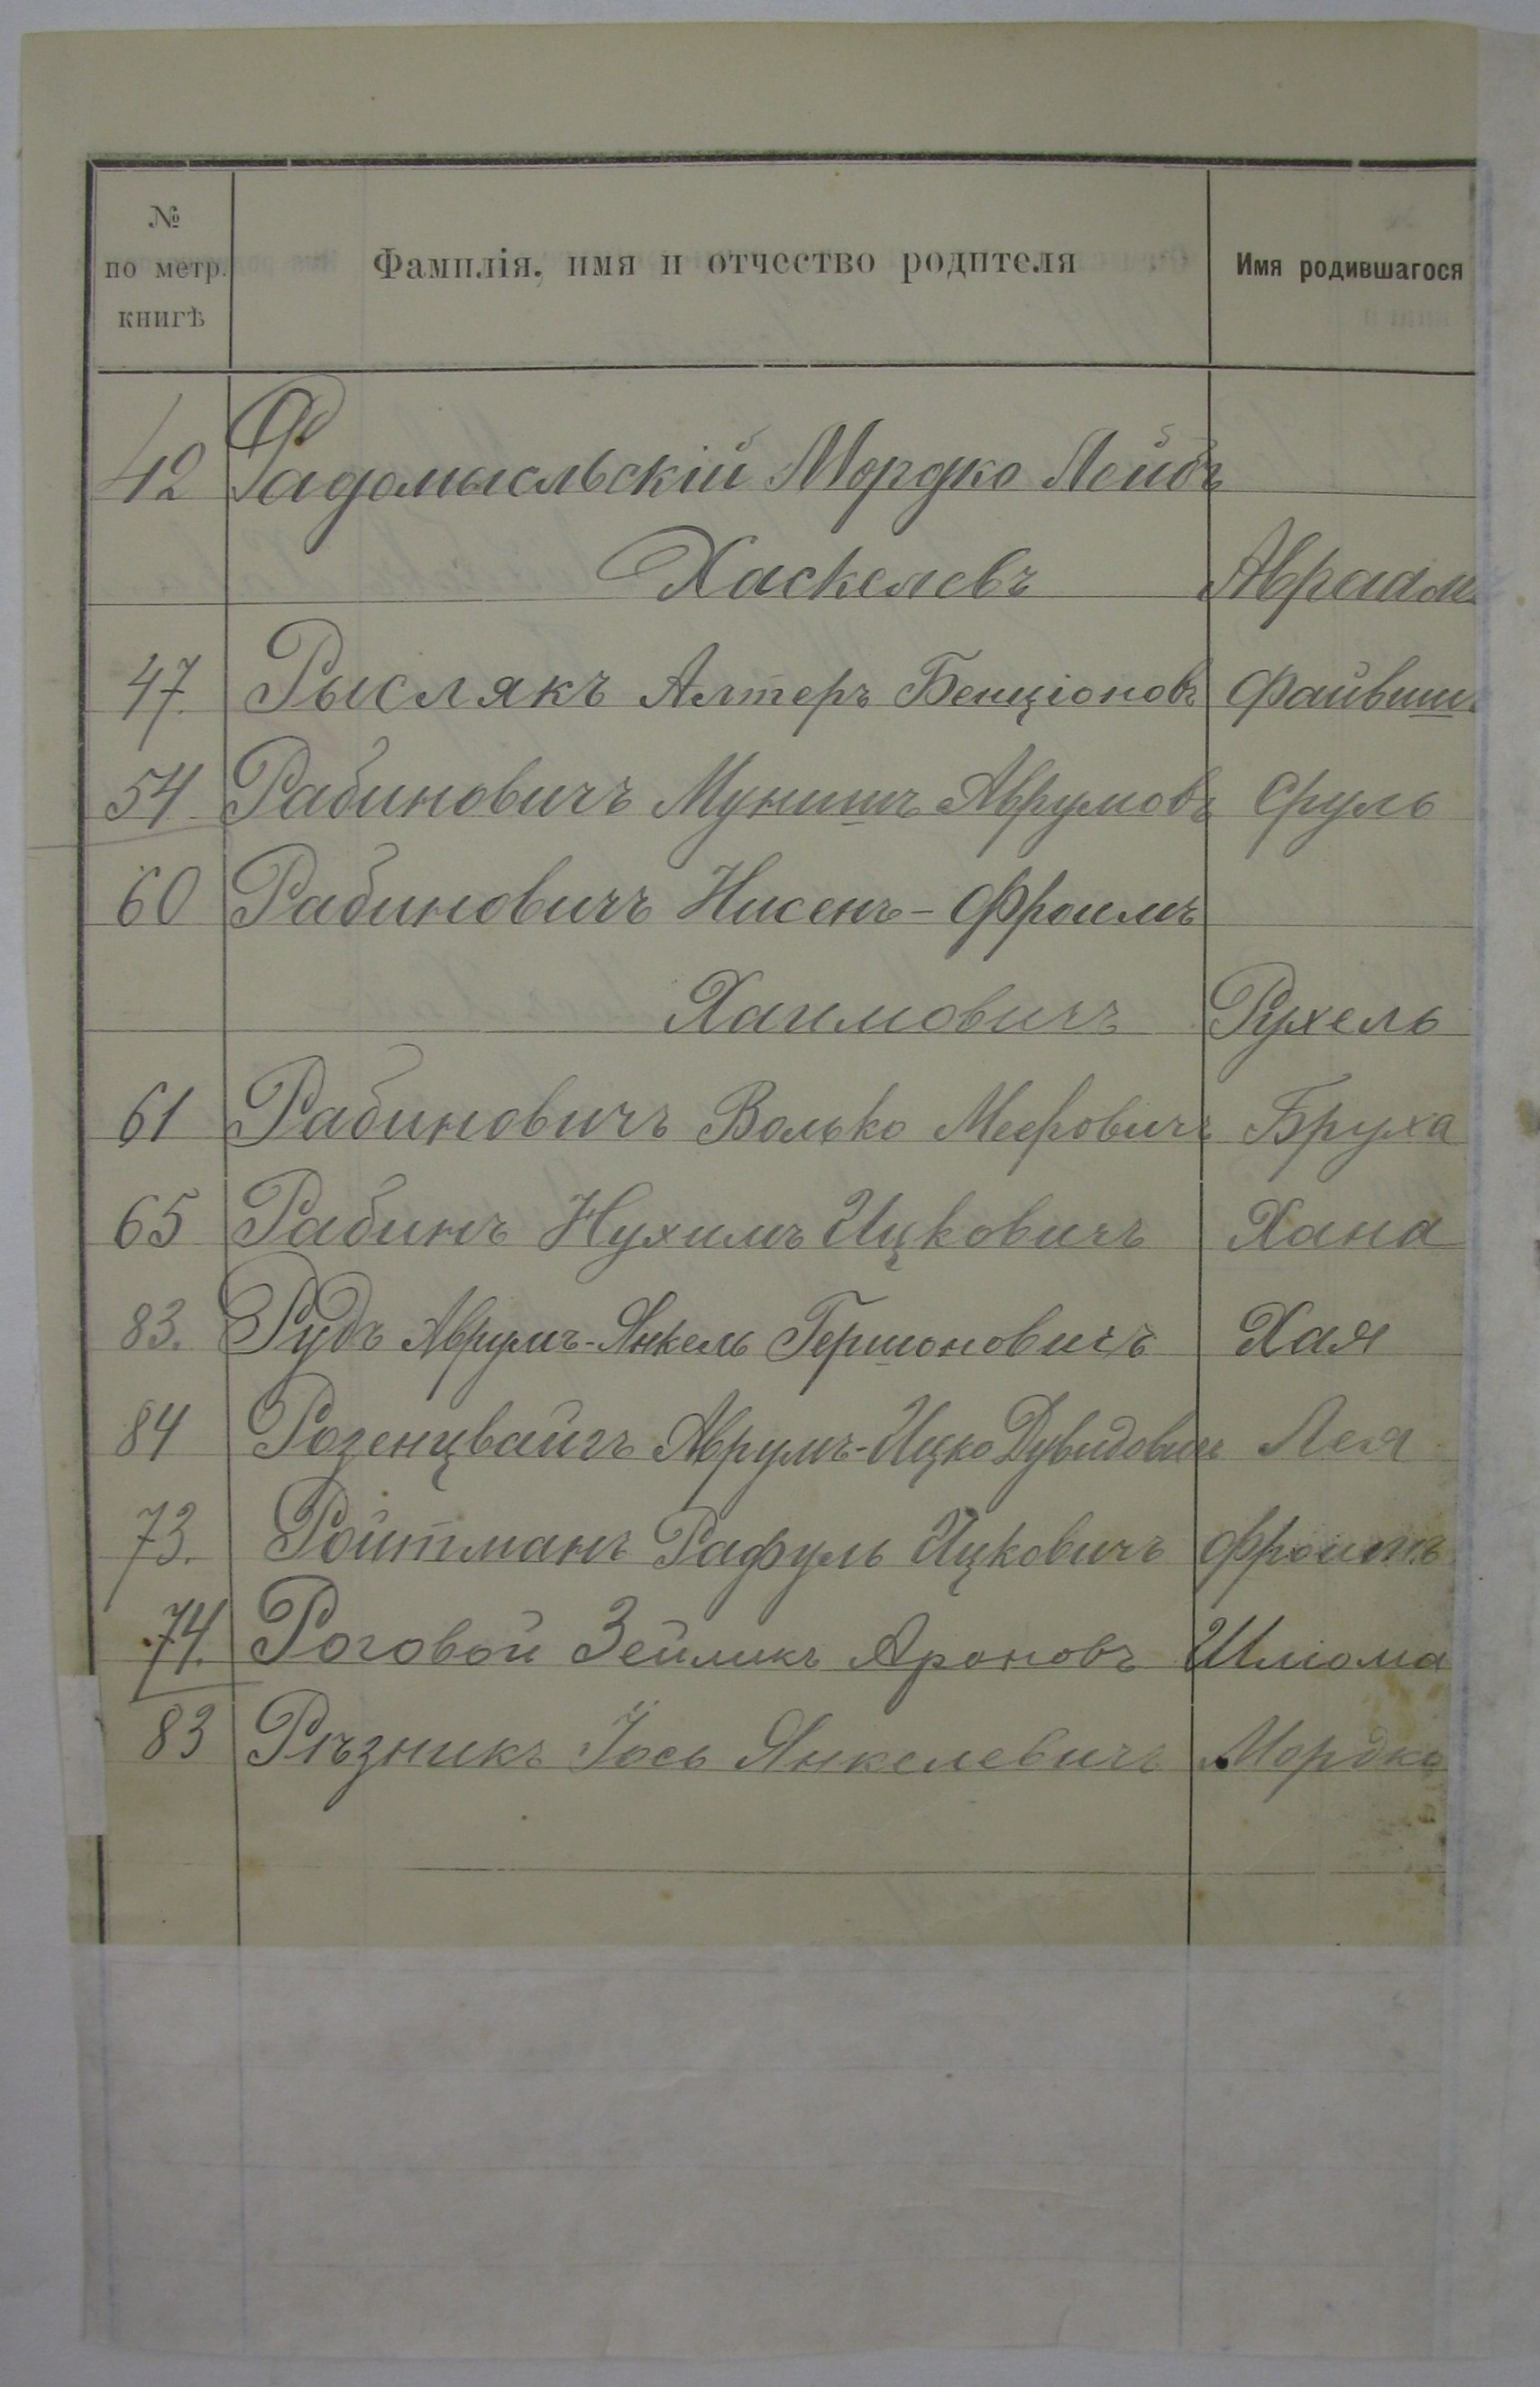 № по метр. книгѣ Фамилія, имя и отчество родителя Имя родившагося
42 Радомысльскій Мордко Лейбъ
Хаскелевъ Авраам
47. Рыслякъ Алтеръ Бенціоновъ Файвиш
54 Рабиновичъ Мунишъ Аврумовъ Сруль
60 Рабиновичъ Нисенъ-Фроимъ
Хаимовичъ Рухель
61 Рабиновичъ Волько Мееровичъ Бруха
65 Рабинъ Нухимъ Ицковичъ Хана
83. Рудъ Аврумъ-Янкель Гершоновичъ Хая
84 Розенцвайгъ Аврумъ-Ицко Дувидовичъ Лея
73. Ройтманъ Рафуль Ицковичъ Фроимъ
74. Роговой Зейликъ Ароновъ Шліома
83 Рѣзникъ Іось Янкелевичъ Мордко